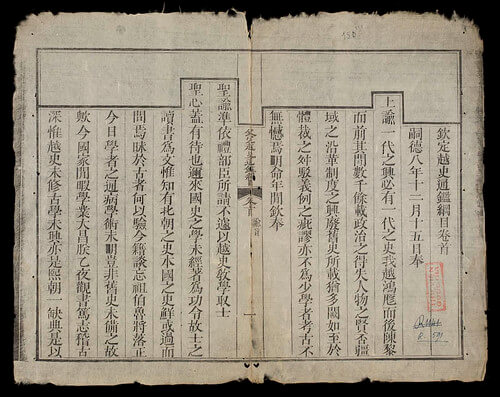 欽定越史通鑑綱目卷首
嗣德八年十二月十五日奉
上諭一代之興必有一代之史我越鴻厖而後陳黎
而前其間數千餘載政治之得失人物之賢否疆
域之沿革制度之興廢舊史所載猶多闕如至於
體裁之舛駁義例之疵謬亦不為少學者考古不
無憾焉明命年間欽奉
聖諭準依禮部臣所請不遽以越史教學取士
聖心蓋有待也邇來國史之學未經著為功令故士之
讀書為文惟知有北朝之史本國之史鮮或過而
問焉昧於古者何以驗今籍談忘祖伯魯將落正
今日學者之通病學術未明豈非舊史未備之故
歟今國家閒暇學業大昌朕乙夜觀書篤志稽古
深惟越史未修古學未興亦是熙朝一缺典是以